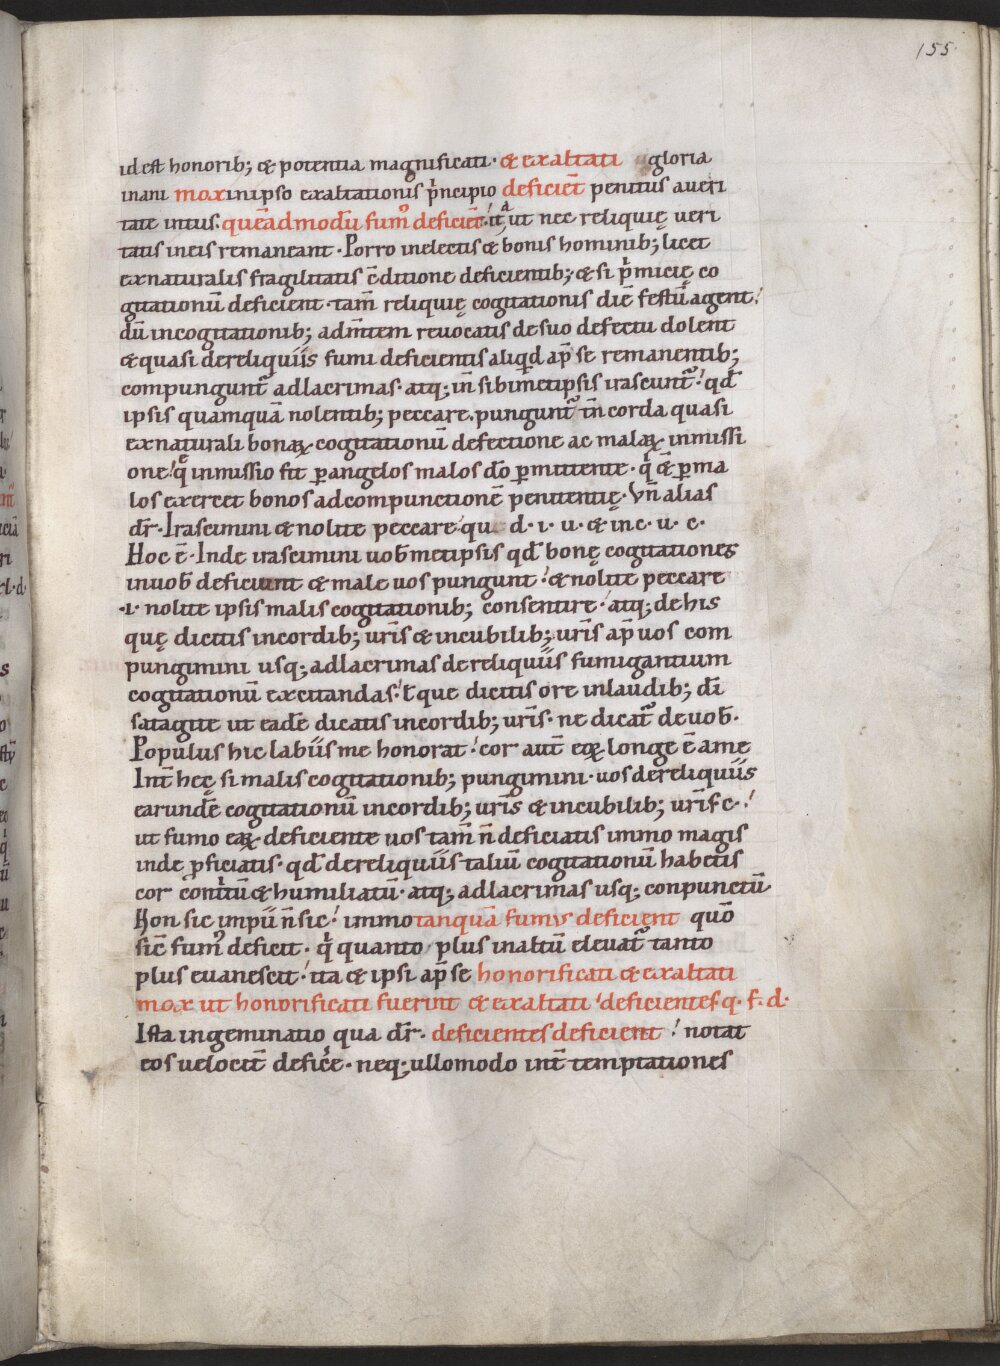 155
id est honorib; & potentia magnificati· & exaltati gloria
inani mox in ipso exaltationis p̍ncipio deficien̄t penitus a ueri
tate intus. quē ad modū fumꝰ deficien̄t·ita, ut nec reliquię ueri
tatis in eis remaneant· Porro in electis & bonis hominib; licet
ex naturalis fragilitatis c̄ditione deficientib; & si p̍micię co
gitationū deficient· tam̄ reliquię cogitationis diē festū agent!
dū in cogitationib; ad m̄tem reuocatis de suo defectu dolent
& quasi de reliquiis fumi deficientis aliqd̄ ap̄ se remanentib;
compungunt᷑ ad lacrimas· atq; in̄ sibimetipsis irascunt᷑! qd̄
ipsis quamquā nolentib; peccare. pungunt᷑ tn̄ corda quasi
ex naturali bonaꝝ cogitationū defectione ac malaꝝ inmissi
one! q̄ inmissio fit ꝑ angelos malos dō ꝑmittente· q̍ & ꝑ ma
los exercet bonos ad compunctionē penitentię· Vn̄ alias
dr̄· Irascimini & nolite peccare! qu d· i· u· & in c· u· c·
Hoc ē· Inde irascimini uob̄ metipsis qd̄ bonę cogitationes
in uob̄ deficiunt & male uos pungunt! & nolite peccare
·i· nolite ipsis malis cogitationib; consentire! atq; de his
quę dicitis in cordib; ur̄is & in cubilib; ur̄is ap̄ uos com
pungimini usq; ad lacrimas de reliquiis fumigantium
cogitationū excitandas! ł que dicitis ore in laudib; dī
satagite ut eadē dicatis in cordib; ur̄is· ne dicat᷑ de uob̄·
Populus hic labiis me honorat! cor aut̄ eoꝝ longe ē a me
Int̄ hęc si malis cogitationib; pungimini· uos de reliquiis
earundē cogitationū in cordib; ur̄is & in cubilib; ur̄is c·!
ut fumo eaꝝ deficiente uos tam̄ n̄ deficiatis immo magis
inde ꝓficiatis· qd̄ de reliquiis taliū cogitationū habetis
cor cont̍tū & humiliatū· atq; ad lacrimas usq; conpunctū·
Non sic impii n̄ sic! immo tanquā fumus deficient quō
sic̄ fumꝰ deficit· q̍ quanto plus in altū eleuat᷑ tanto
plus euanescit! ita & ipsi ap̄ se honorificati & exaltati
mox ut honorificati fuerint & exaltati! deficientes q· f· d·
Ista ingeminatio qua dr̄· deficientes deficient! notat
eos uelocit̄ defic̍e· neq; ullo modo int̄ temptationes